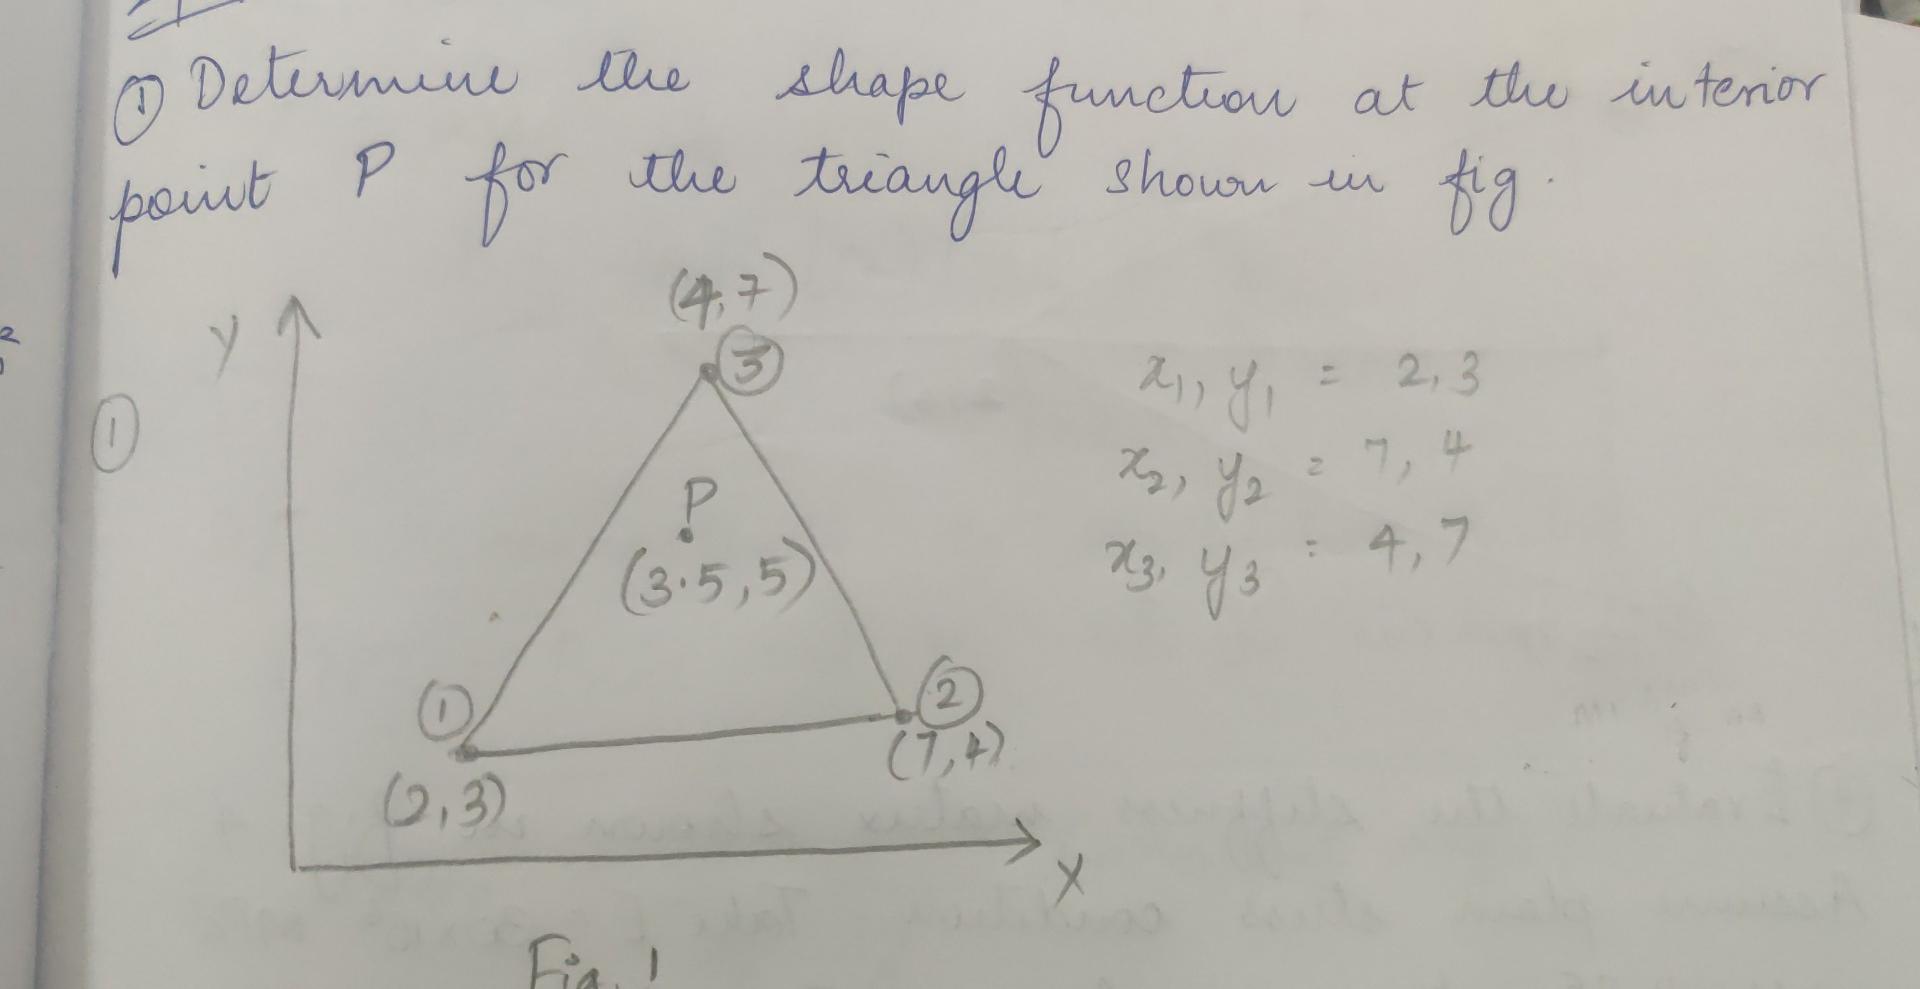 ① Determine the shape function at the interior
point P for the triangle shown in fig.
(4,7)
y
③
x₁, y₁ = 2,3
①
x₂, y₂ = 7, 4
P
(3.5,5)
x₃, y₃ = 4,7
①
②
(7,4)
(2,3)
X
Fig. 1